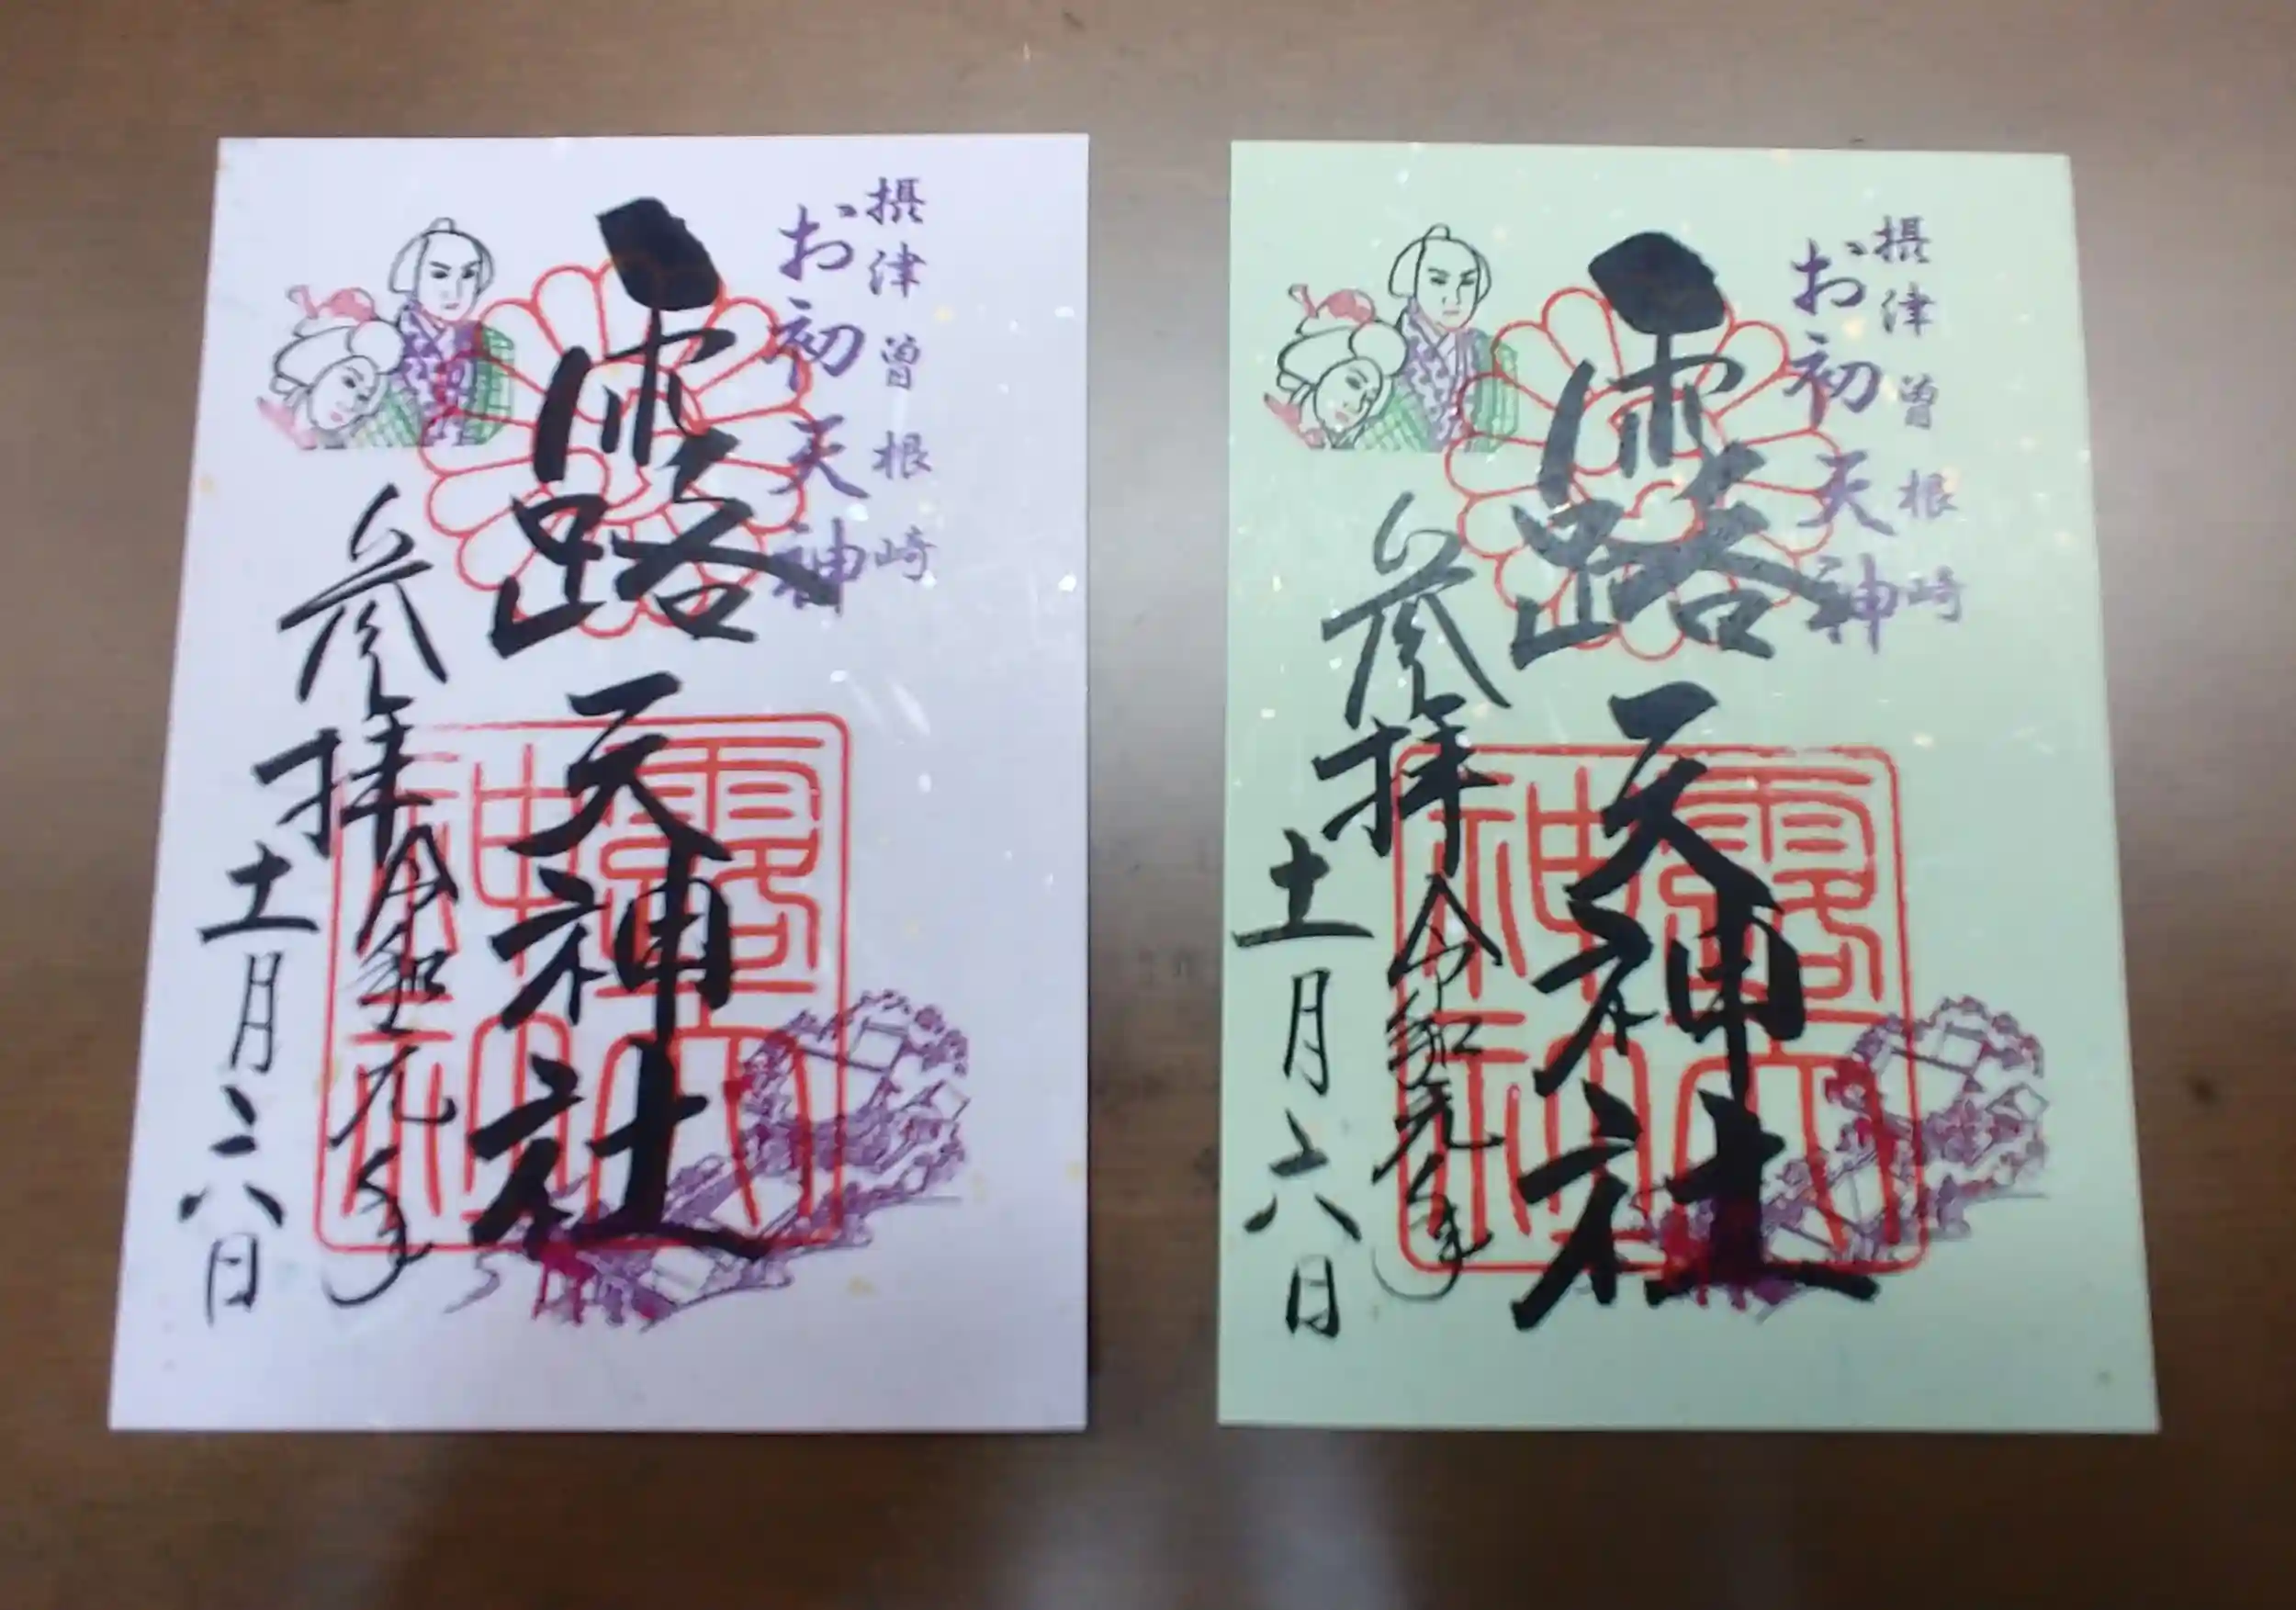 摂津曽根崎
お初天神
露天神社
参拝
令和元年
十一月六日
摂津曽根崎
お初天神
露天神社
参拝
令和元年
十一月六日